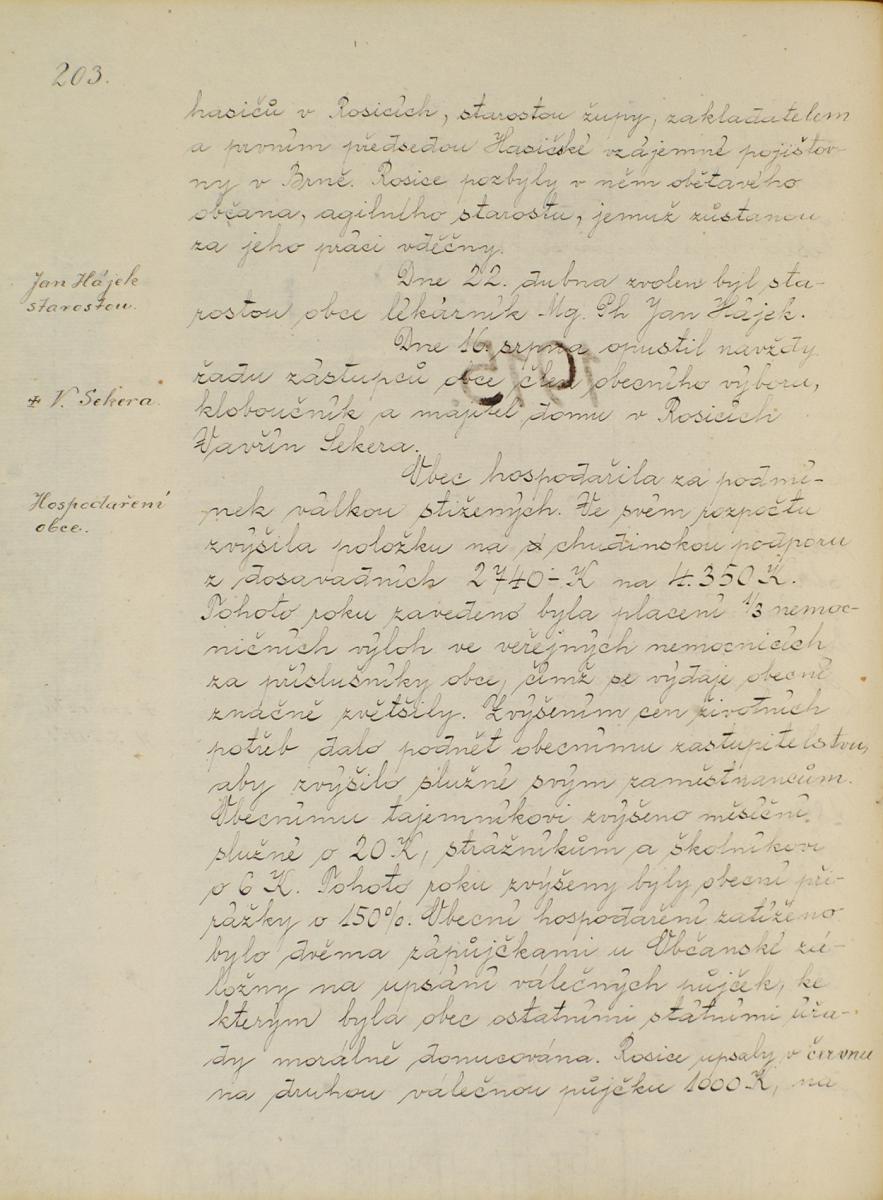 203.
hasičů v Rosicích, starostou župy, zakladatelem
a prvním předsedou Hasičské vzájemné pojišťov-
ny v Brně. Rosice pozbyly v něm obětavého
občana, agilního starostu, jemuž zůstanou
za jeho práci vděčny.
Jan Hájek
starostou.
Dne 22. dubna zvolen byl sta-
rostou obce lékárník Mg. Ph Jan Hájek.
Dne 16. srpna opustil navždy
řadu zástupců obce člen obecního výboru,
✠ V. Sekera.
kloboučník a majitel domu v Rosicích
Vavřín Sekera.
Hospodaření
obce.
Obec hospodařila za podmí-
nek válkou stížených. Ve svém rozpočtu
zvýšila položku na chudinskou podporu
z dosavadních 2740·- K na 4.350 K.
Tohoto roku zavedeno byla placení 1/3 nemoc-
ničních výloh ve veřejných nemocnicích
za příslušníky obce, čímž se výdaje obecné
značně zvětšily. Zvýšením cen životních
potřeb dalo podnět obecnímu zastupitelstvu,
aby zvýšilo služné svým zaměstnancům.
Obecnímu tajemníkovi zvýšeno měsíční
služné o 20 K, strážníkům a školníkovi
o 6 K. Tohoto roku zvýšeny byly obecní při-
rážky o 150%. Obecní hospodaření zatíženo
bylo dvěma zápůjčkami u Občanské zá-
ložny na upsání válečných půjček, ke
kterým byla obec ostatními státními úřa-
dy morálně donucována. Rosice upsaly v červnu
na druhou válečnou půjčku 1000 K, na